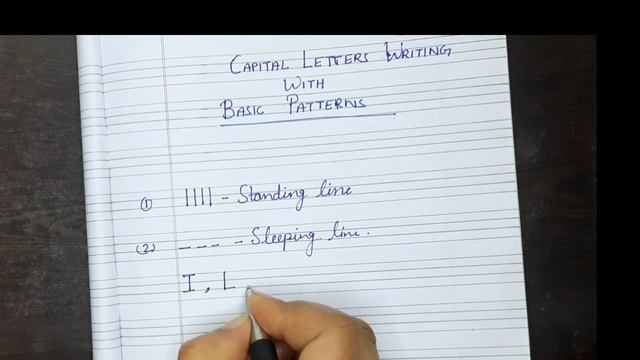 CAPITAL LETTERS WRITING
WITH
BASIC PATTERNS
① |||| - Standing line
(2) --- - Sleeping line.
I, L